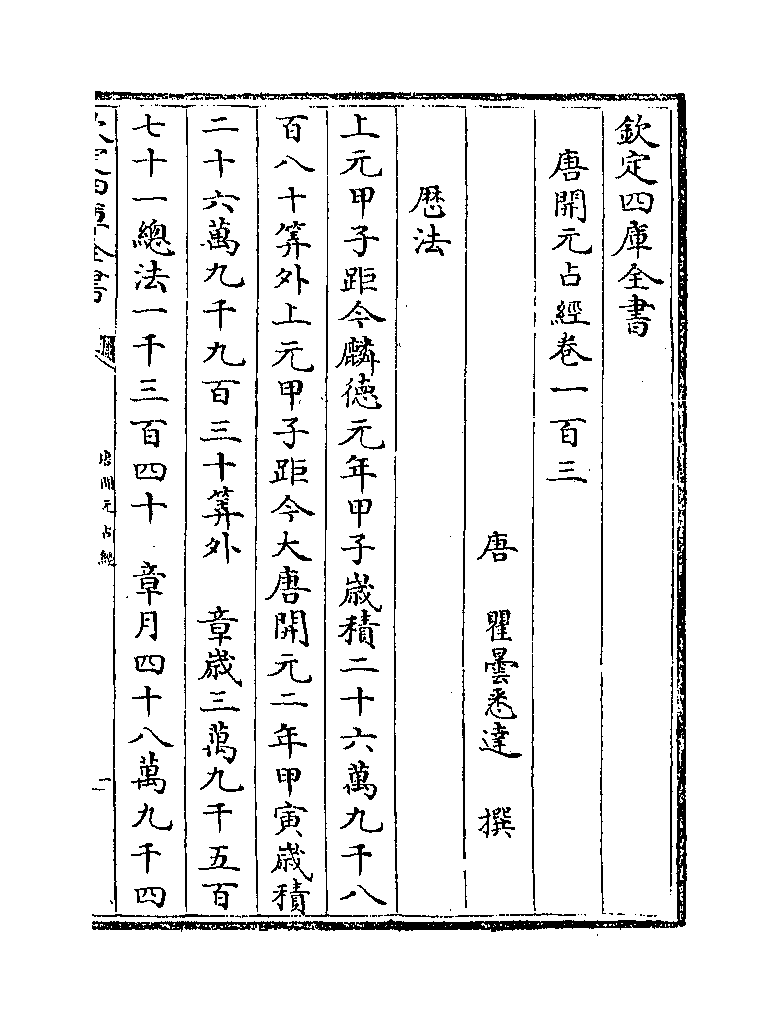 欽定四庫全書
唐開元占經卷一百三
唐 瞿曇悉達 撰
厯法
上元甲子距今麟徳元年甲子歳積二十六萬九千八
百八十筭外上元甲子距今大唐開元二年甲寅歳積
二十六萬九千九百三十筭外 章歳三萬九千五百
七十一總法一千三百四十 章月四十八萬九千四
欽定四庫全書
唐開元占經
一